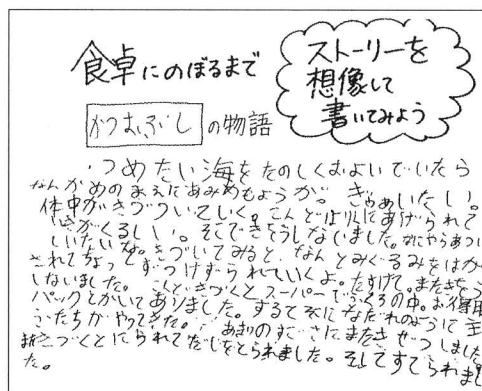 食卓にのぼるまで
ストーリーを
想像して
書いてみよう
かつおぶしの物語
つめたい海をたのしくおよいでいたら
なんかめのまえにあみめもようが。ぎゃあいたい。
体中がきづついていく。こんどはりくにあげられて
息がくるしい。そこできをうしないました。なにやらあつい
しいたいな。きづいてみると、なんとみぐるみをはが
されてちょっとずつけずられていくよ。たすけて。またきをう
しないました。こんどきづくとスーパーでふくろの中。お得用
パックとかいてありました。するて
きたちがやってきた。あまりの またきぜつしました。
づくとにられてだしをとられました。そしてすてられまし
た。